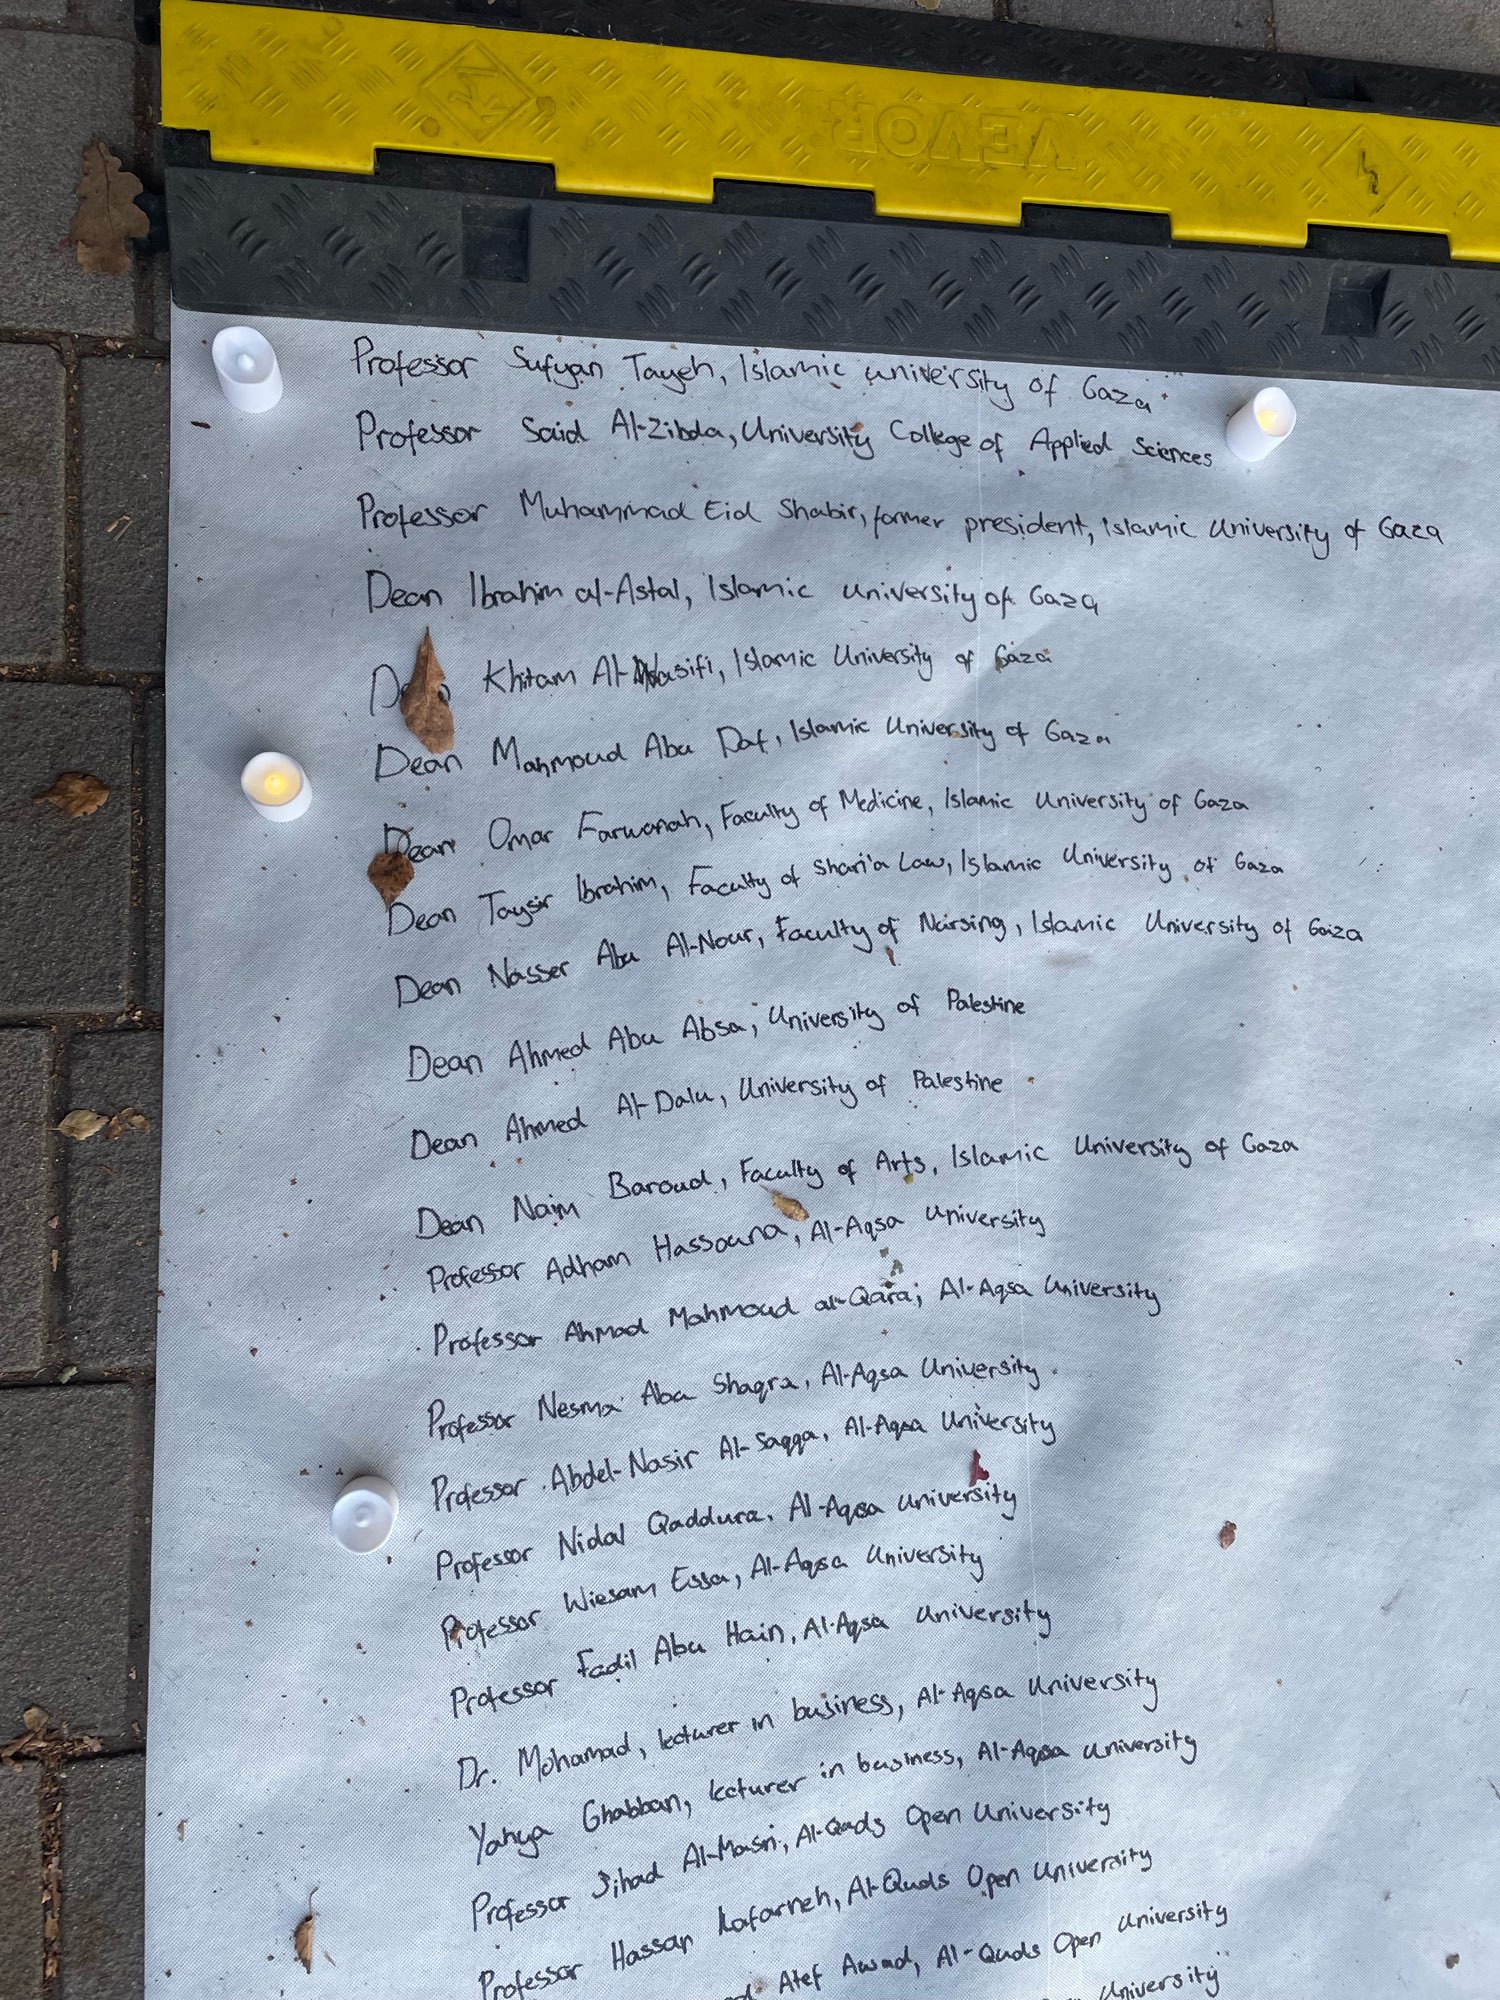 VEVOR
Professor Sufyan Tayeh, Islamic university of Gaza
Professor Said Al-Zibda, University College of Applied Sciences
Professor Muhammad Eid Shabir, former president, Islamic University of Gaza
Dean Ibrahim al-Astal, Islamic university of Gaza
Khitam Al-Wasifi, Islamic University of Gaza
Dean Mahmoud Abu Daf, Islamic University of Gaza
Dean Omar Farwanah, Faculty of Medicine, Islamic University of Gaza
Dean Taysir Ibrahim, Faculty of Shari'a Law, Islamic University of Gaza
Dean Nasser Abu Al-Nour, Faculty of Nursing, Islamic University of Gaza
Dean Ahmed Abu Absa, University of Palestine
Dean Ahmed Al-Dalu, University of Palestine
Dean Naim Baroud, Faculty of Arts, Islamic University of Gaza
Professor Adham Hassouna, Al-Aqsa University
Professor Ahmad Mahmoud al-Qara, Al-Aqsa University
Professor Nesma Abu Shaqra, Al-Aqsa University
Professor Abdel-Nasir Al-Saqqa, Al-Aqsa University
Professor Nidal Qaddura, Al-Aqsa University
Professor Wiesam Essa, Al-Aqsa University
Professor Fadil Abu Hain, Al-Aqsa University
Dr. Mohamad, lecturer in business, Al-Aqsa University
Yahya Ghabban, lecturer in business, Al-Aqsa University
Professor Jihad Al-Masri, Al-Quds Open University
Professor Hassan Kafarneh, Al-Quds Open University
Atef Awad, Al-Quds Open University
University